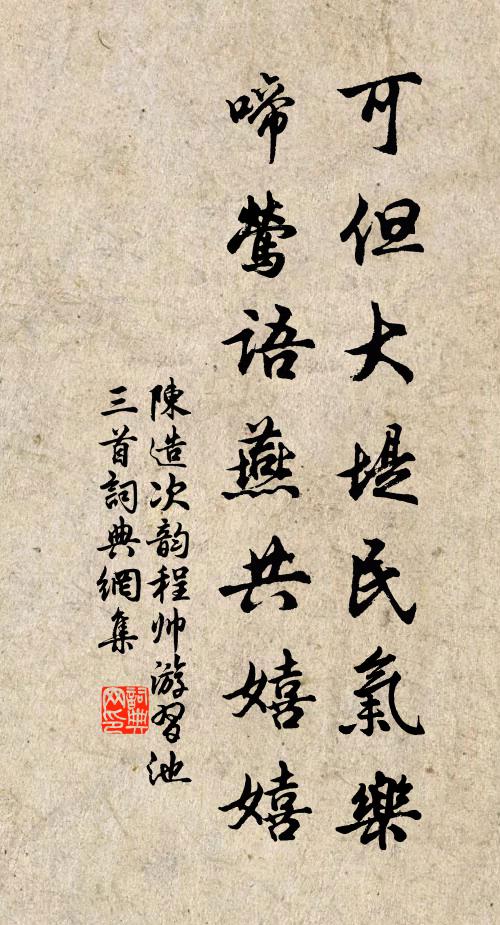 可但大堤民氣樂
啼鶯語燕共嬉嬉
陳造次韵程帅游習池
三首詞典網集
詞典网印